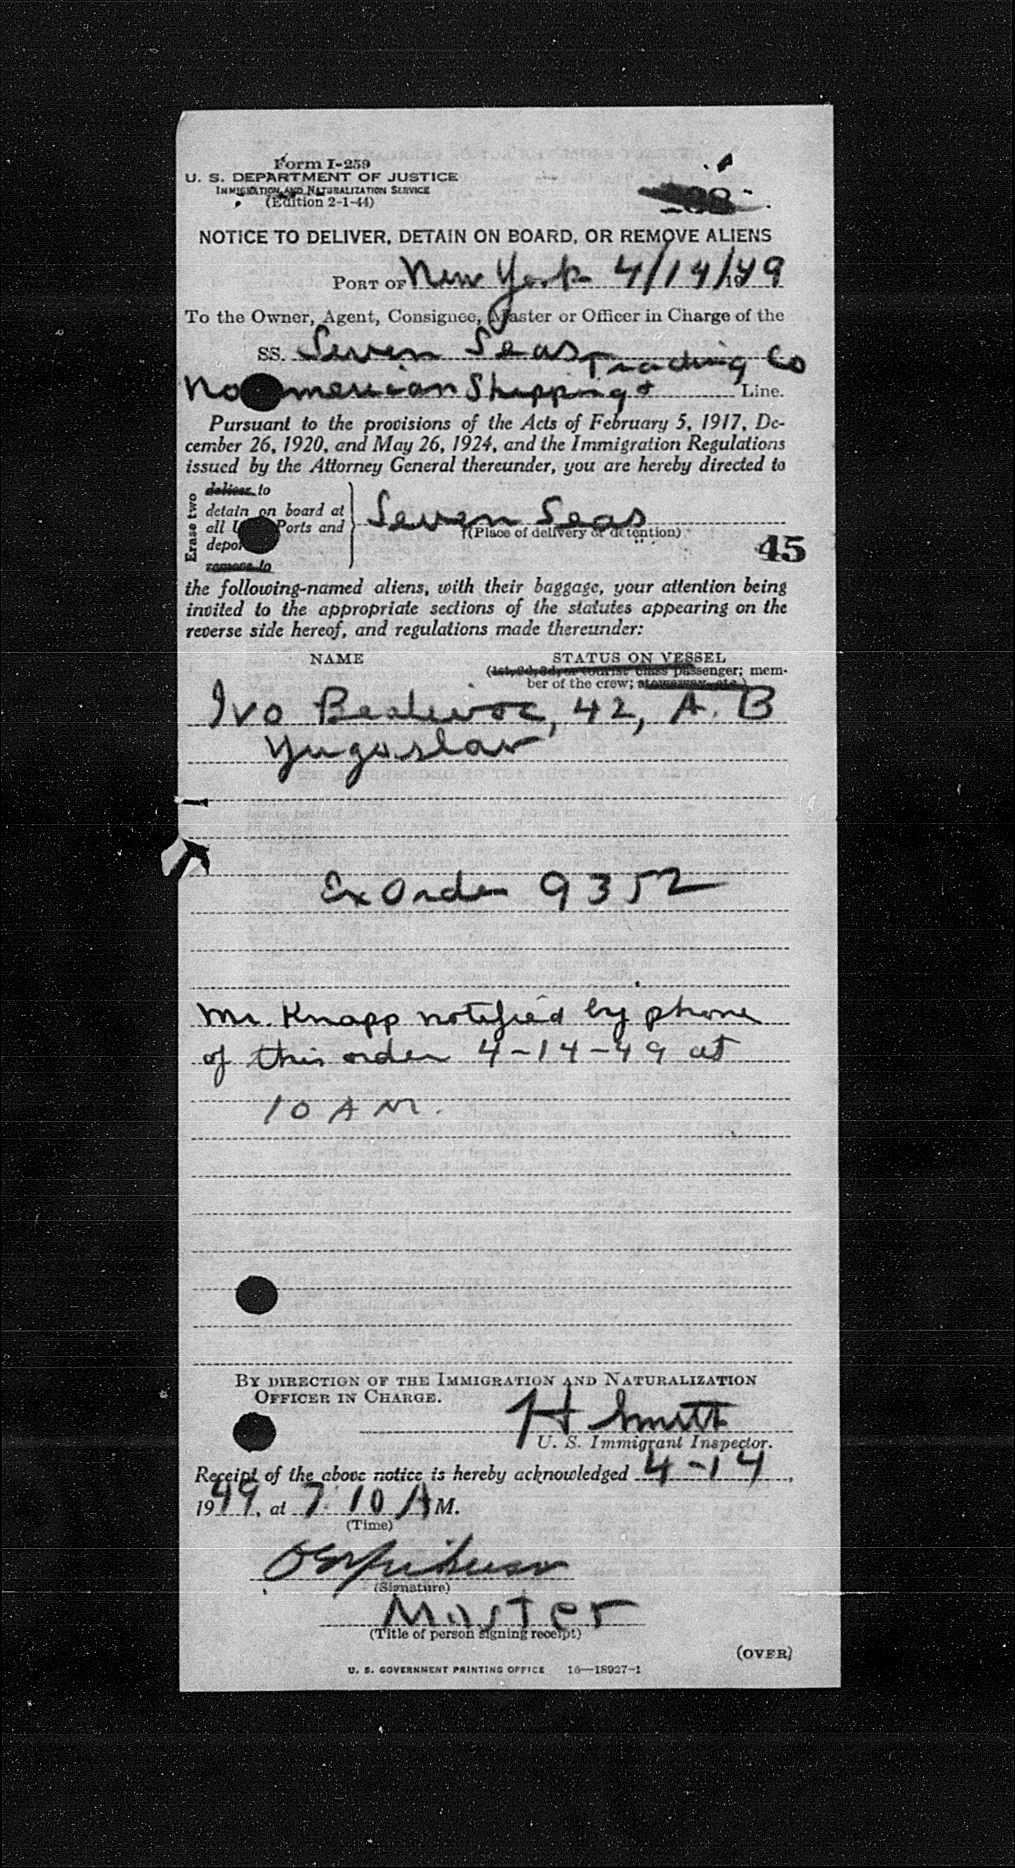 Form I-259
U. S. DEPARTMENT OF JUSTICE
IMMIGRATION AND NATURALIZATION SERVICE
(Edition 2-1-44)
NOTICE TO DELIVER, DETAIN ON BOARD, OR REMOVE ALIENS
PORT OF New York 4/14/1949
To the Owner, Agent, Consignee, Master or Officer in Charge of the
SS. Seven Seas
Trading Co
No merican Shipping + Line.
Pursuant to the provisions of the Acts of February 5, 1917, De-
cember 26, 1920, and May 26, 1924, and the Immigration Regulations
issued by the Attorney General thereunder, you are hereby directed to
Erase two
deliver to
detain on board at
all Ports and
depor
remove to
Seven Seas
(Place of delivery or detention)
45
the following-named aliens, with their baggage, your attention being
invited to the appropriate sections of the statutes appearing on the
reverse side hereof, and regulations made thereunder:
NAME STATUS ON VESSEL
(1st, 2d, 3d, or tourist class passenger; mem-
ber of the crew; stowaway, etc.)
Ivo 42, A. B
Yugoslav
Ex Order 9352
Mr. Knapp notified by phone
of this order 4-14-49 at
10 AM.
BY DIRECTION OF THE IMMIGRATION AND NATURALIZATION
OFFICER IN CHARGE.
H Smith
U. S. Immigrant Inspector.
Receipt of the above notice is hereby acknowledged 4-14,
1949, at 7:10 A M.
(Time)
(Signature)
Master
(Title of person signing receipt)
(OVER)
U. S. GOVERNMENT PRINTING OFFICE 16—18927-1